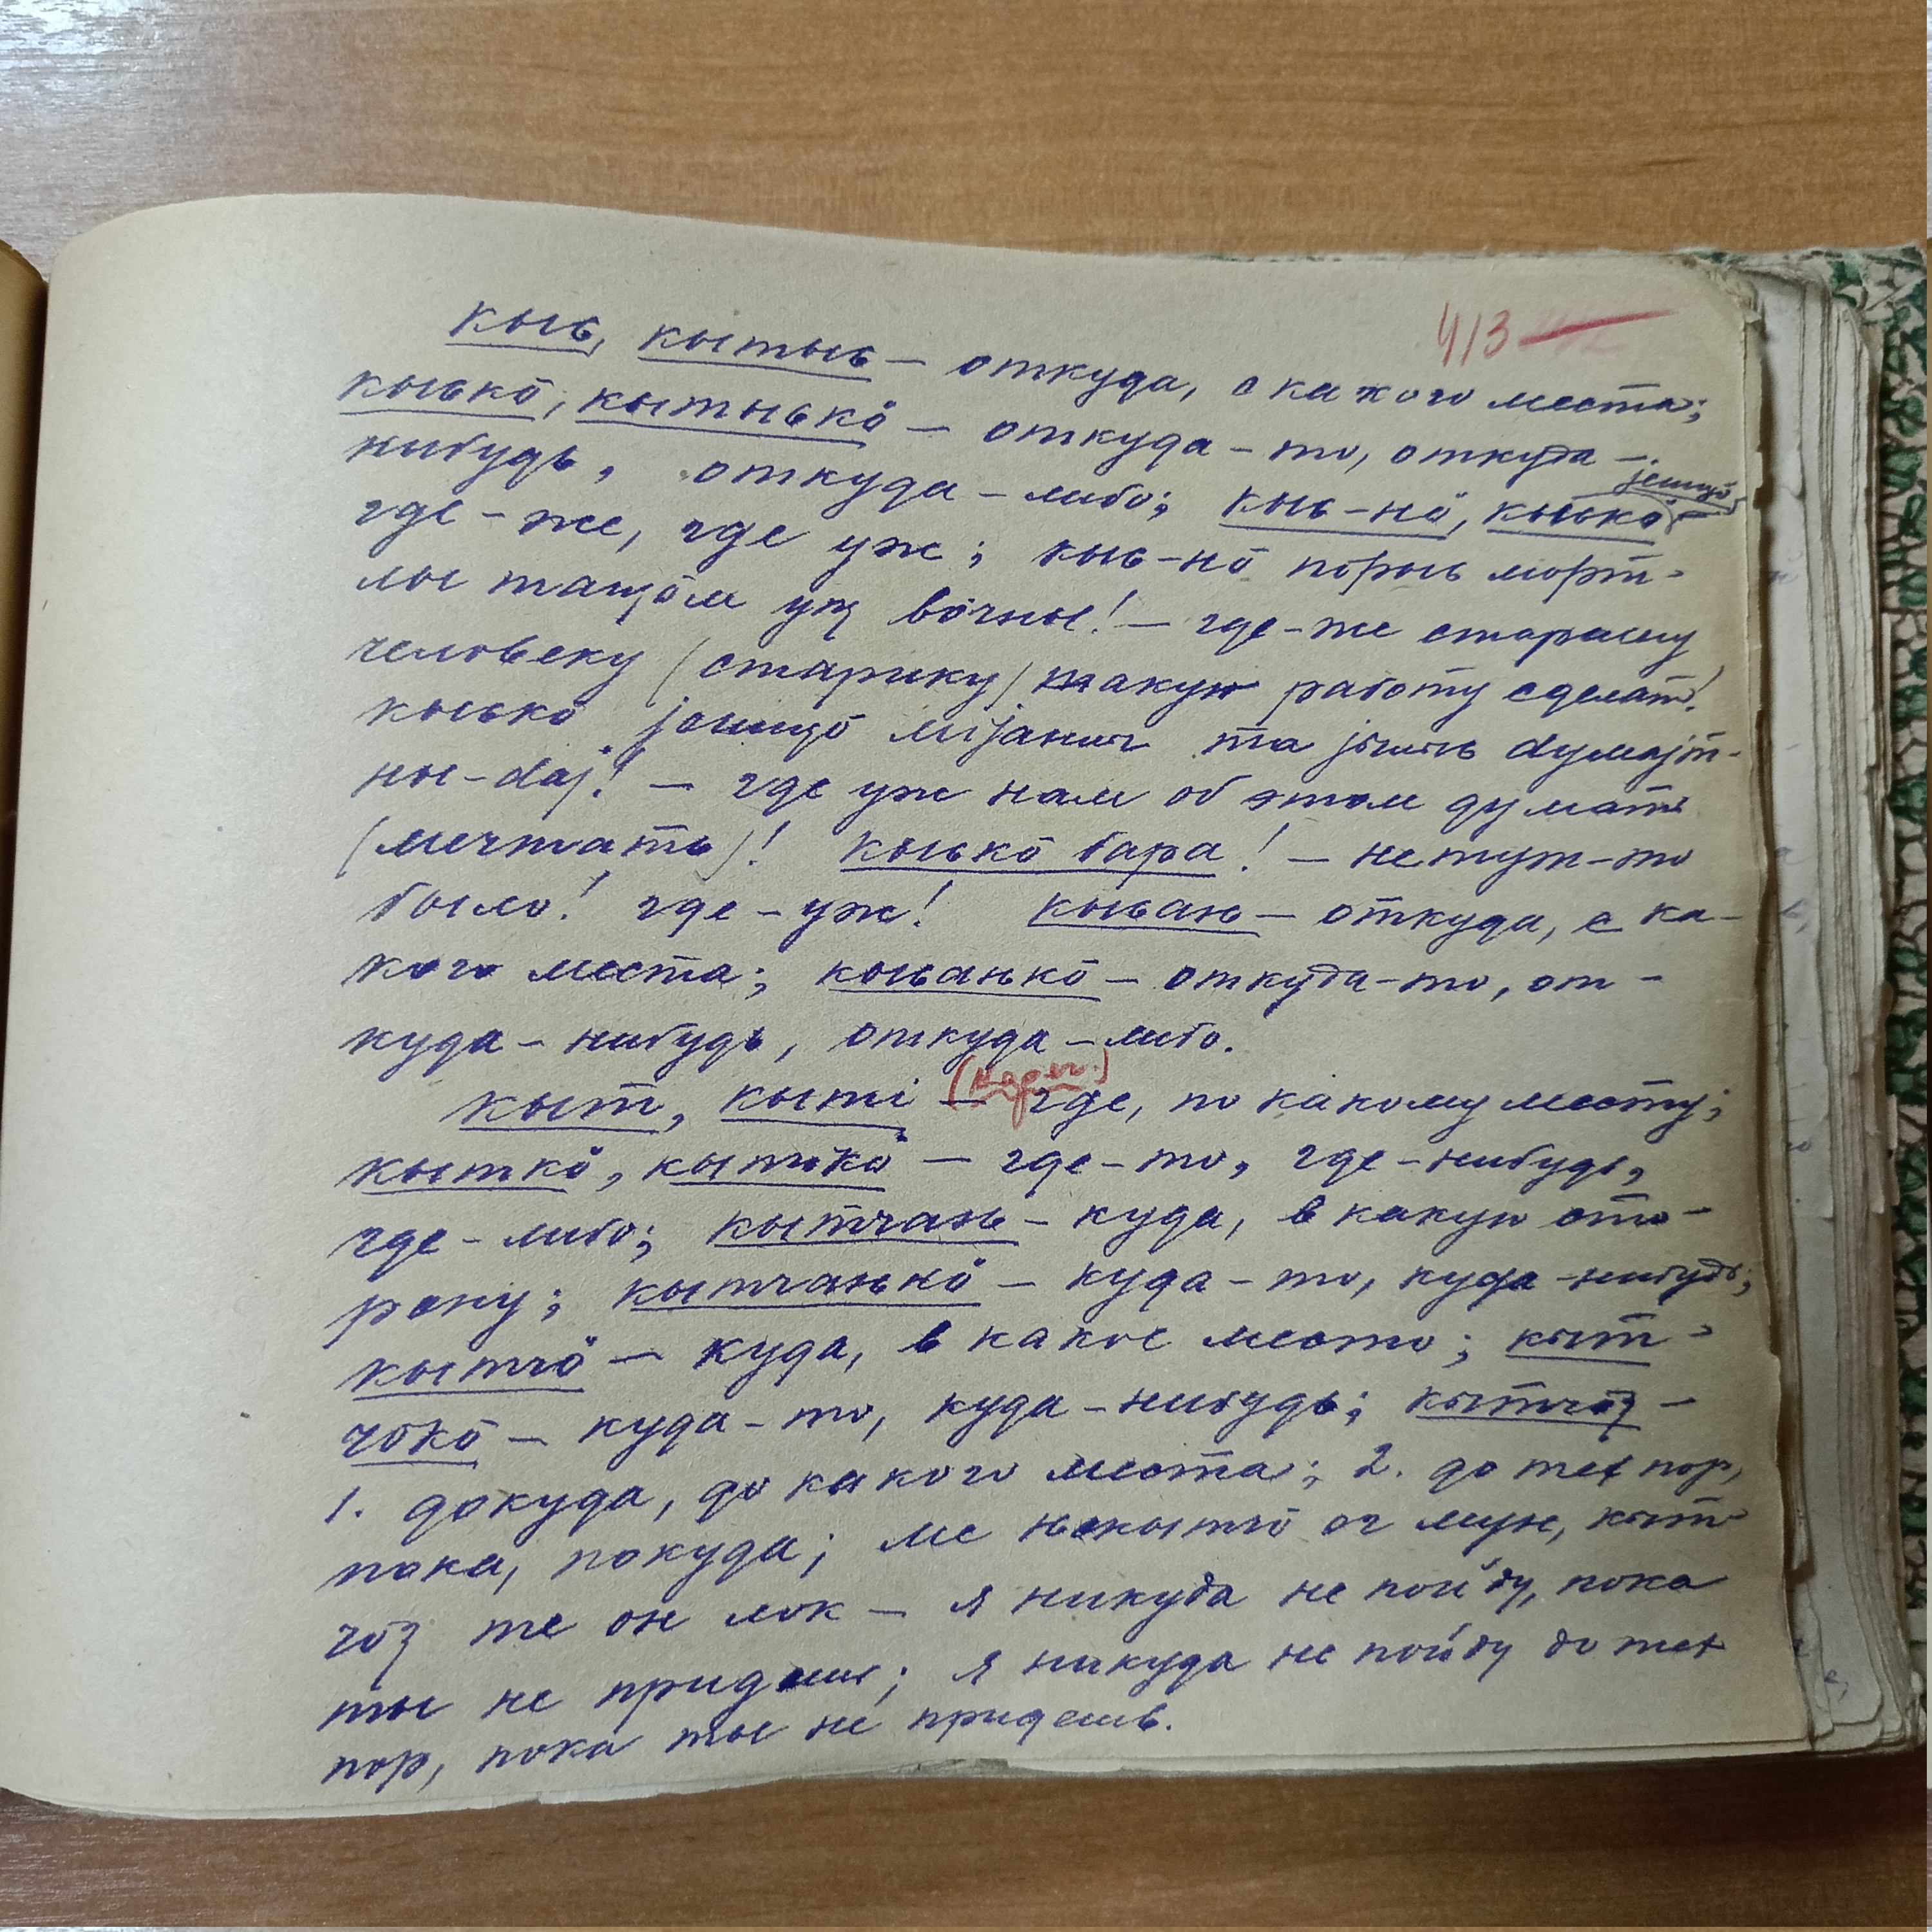 413
кыԍ, кытыԍ — откуда, с какого места;
кыԍкӧ, кытыԍкӧ — откуда-то, откуда-
нибудь, откуда-либо; кыԍ-нӧ, кыԍкӧ (јешщӧ)
где-же, где уж; кыԍ-нӧ пӧрыԍ морт-
лы тащӧм уҗ вӧчны! — где-же старому
человеку (старику) такую работу сделать!
кыԍкӧ јешщӧ мијанлы та јылыԍ думајт-
ны-дај! — где уж нам об этом думать
(мечтать)! кыԍкӧ бара! — не тут-то
было! где-уж! кыԍаԋ — откуда, с ка-
кого места; кыԍаԋкӧ — откуда-то, от-
куда-нибудь, откуда-либо.
кыт, кыті (нареч.) — где, по какому месту;
кыткӧ, кытікӧ — где-то, где-нибудь,
где-либо; кытчаԋ — куда, в какую сто-
рону; кытчаԋкӧ — куда-то, куда-нибудь;
кытчӧ — куда, в какое место; кыт-
чӧкӧ — куда-то, куда-нибудь; кытчӧҗ —
1. докуда, до какого места; 2. до тех пор,
пока, покуда; ме некытчӧ ог мун, кыт-
чӧҗ те он лок — я никуда не пойду, пока
ты не придешь; я никуда не пойду до тех
пор, пока ты не придешь.